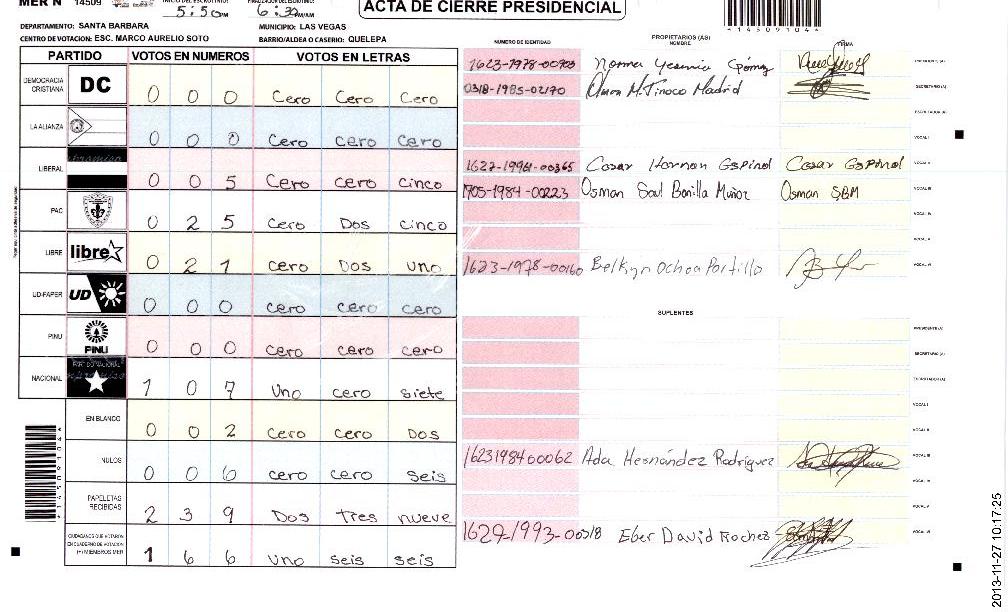 MER N 14509 5:50 PM 6:30 PM/AM ACTA DE CIERRE PRESIDENCIAL
*14509104*
DEPARTAMENTO: SANTA BARBARA MUNICIPIO: LAS VEGAS
CENTRO DE VOTACION: ESC. MARCO AURELIO SOTO BARRIO/ALDEA O CASERIO: QUELEPA
PARTIDO VOTOS EN NUMEROS VOTOS EN LETRAS
DEMOCRACIA CRISTIANA DC 0 0 0 Cero Cero Cero
LA ALIANZA 0 0 0 Cero Cero Cero
LIBERAL 0 0 5 Cero cero cinco
PAC 0 2 5 Cero Dos cinco
LIBRE libre 0 2 1 cero Dos uno
UD-FAPER UD 0 0 0 cero cero cero
PINU PINU 0 0 0 cero cero cero
NACIONAL 1 0 7 Uno cero siete
EN BLANCO 0 0 2 Cero cero Dos
NULOS 0 0 6 cero cero Seis
PAPELETAS RECIBIDAS 2 3 9 Dos tres nueve
CIUDADANOS QUE VOTARON EN CUADERNO DE VOTACION (+) MIEMBROS MER 1 6 6 uno seis seis
PROPIETARIOS (AS)
NUMERO DE IDENTIDAD NOMBRE FIRMA
Norma Yesenia Gómez
0318-1985-02170 M. Tinoco Madrid SECRETARIO (A)
ESCRUTADOR (A)
VOCAL I
Cesar Hernan Espinol Cesar Espinol VOCAL II
1705-1984-00223 Osman Saul Bonilla Muñoz Osman SBM VOCAL III
VOCAL IV
VOCAL V
1623-1978-00160 Belkyn Ochoa Portillo VOCAL VI
SUPLENTES
PRESIDENTE (A)
SECRETARIO (A)
ESCRUTADOR (A)
VOCAL I
VOCAL II
1623198400062 Ada Hernández Rodríguez VOCAL III
VOCAL IV
VOCAL V
1629-1993-00318 Eber David Rochez VOCAL VI
2013-11-27 10:17:25